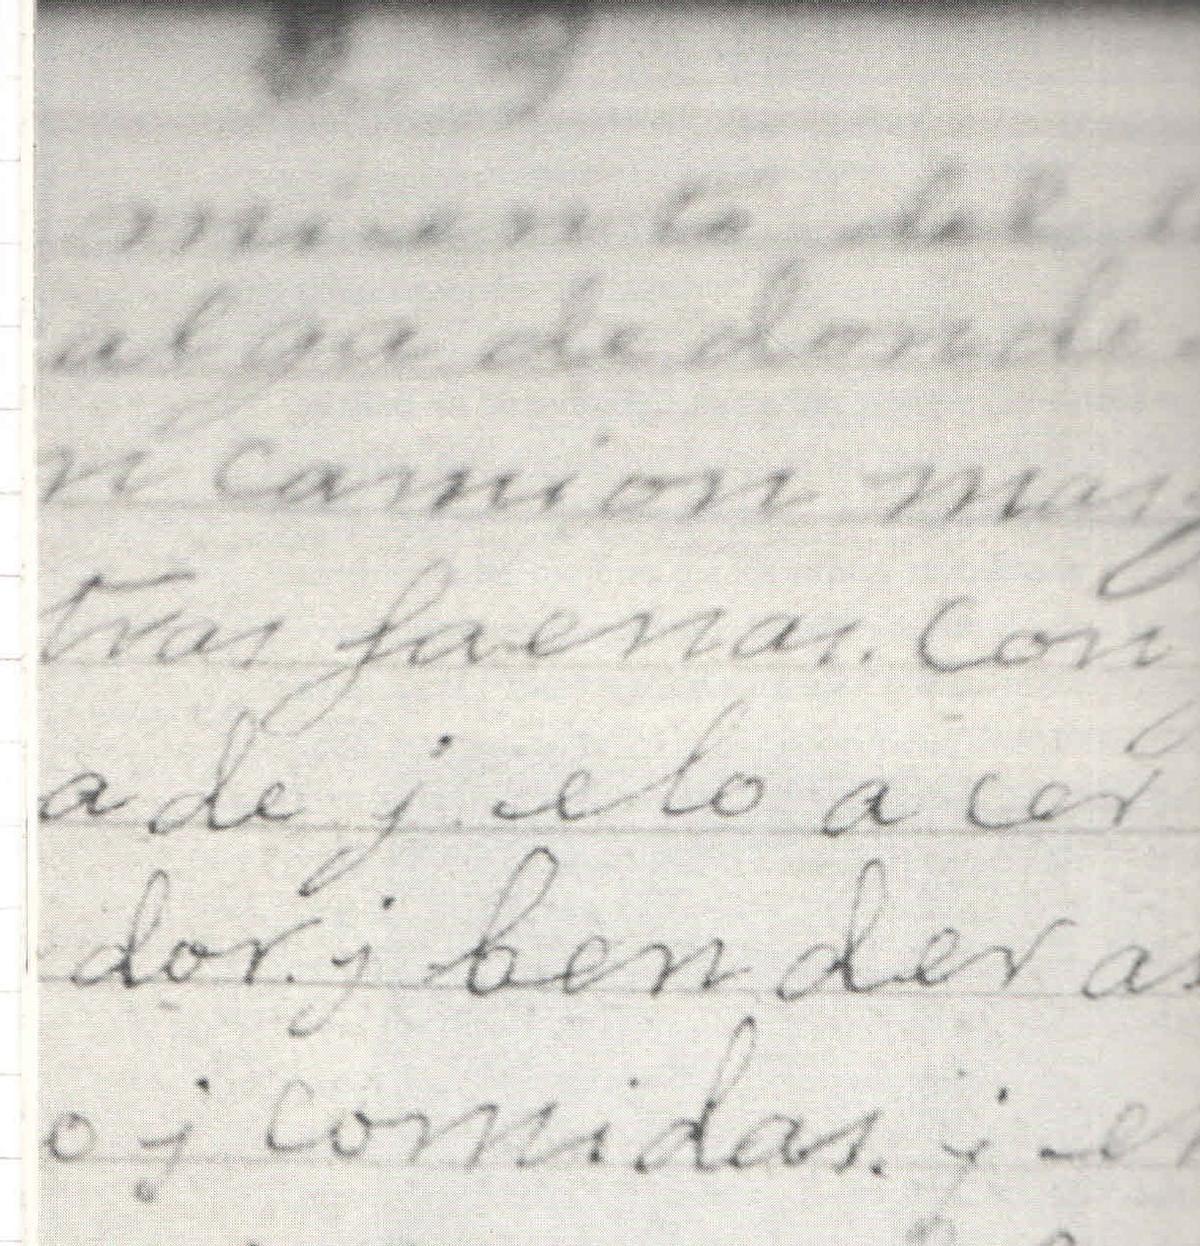 miento del
alga de donde
n camion mas
tras faenas. Con
a de j elo a cer
dor. j ben der a
o j comidas. j e